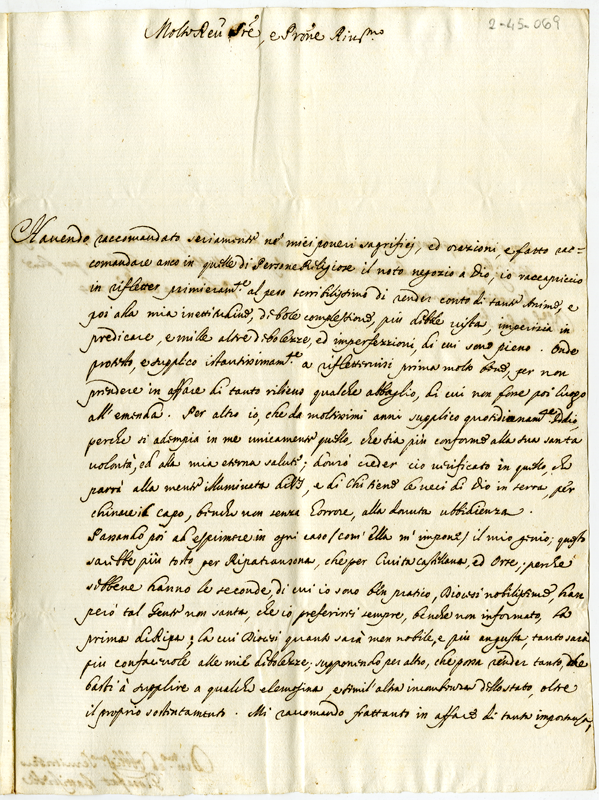 2-45-069
Molto Reu Pre, e Prone Riusmo
Hauendo raccomandato seriamente ne' miei poueri sagrifizj, ed orazioni, e fatto rac-
comandare anco in quelle di Persone Religiose il noto negozio a Dio, io raccapriccio
in rifletter primieramte al peso terribilissimo di render conto di tante Anime, e
poi alla mia inettitudine, debole complessione, più debole vista, imperizia in
predicare, e mille altre debolezze, ed imperfezzioni, di cui sono pieno. Onde
protesto, e supplico istantissimamte a riflettervisi prima molto bene, per non
prendere in affare di tanto rilieuo qualche abbaglio, di cui non fosse poi luogo
all'emenda. Per altro io, che da moltissimi anni supplico quotidianamte Iddio,
perche si adempia in me unicamente quello, che sia più conforme alla sua santa
volontà, ed alla mia eterna salute; dourò creder ciò uerificato in quello, che
parrà alla mente illuminata di e di chi tiene le ueci di Dio in terra, per
chinare il capo, benche non senza orrore, alla douuta ubbidienza.
Passando poi ad esprimere in ogni caso (com' Ella m'impone) il mio genio; questo
sarebbe più tosto per Ripatransona, che per Ciuita Castellana, ed Orte; perche
sebbene hanno le seconde, di cui io sono ben pratico, Diocesi nobilissime, han
però tal Gente non santa, che io preferirei sempre, benche non informato, la
prima di Ripa; la cui Diocesi quanto sarà men nobile, e più angusta, tanto sarà
più confaceuole alle mie debolezze; supponendo per altro, che possa render tanto, che
basti à supplire a qualche elemosina, e simil' altra incombenza dello stato, oltre
il proprio sostentamento. Mi raccomando frattanto in affare di tanta importanza,